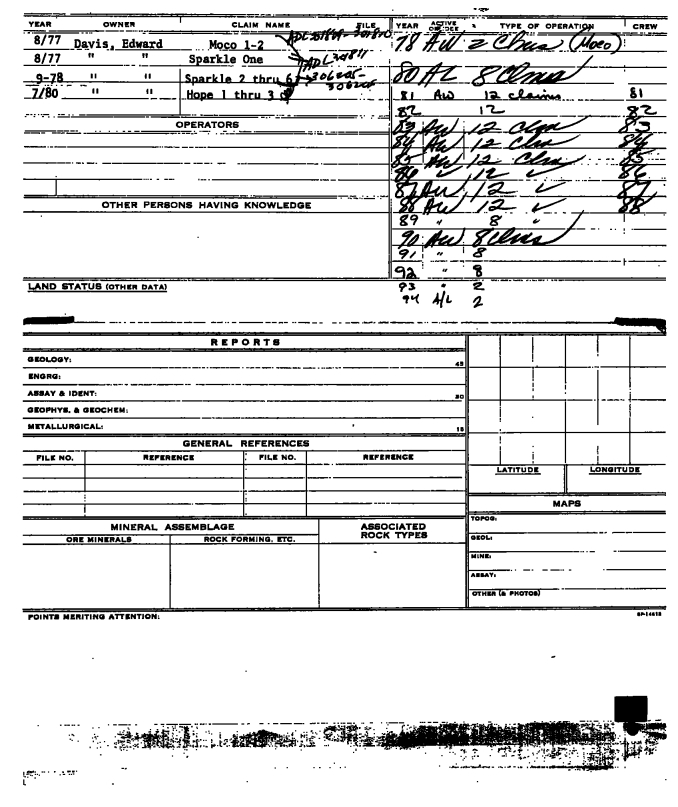 YEAR OWNER CLAIM NAME FILE
8/77 Davis, Edward Moco 1-2
8/77 " " Sparkle One
9-78 " " Sparkle 2 thru 6
7/80 " " Hope 1 thru 3
OPERATORS
OTHER PERSONS HAVING KNOWLEDGE
LAND STATUS (OTHER DATA)
YEAR ACTIVE TYPE OF OPERATION CREW
78 AW 2 Clms (Moco)
80 AL 8 Clms
81 AW 12 claims 81
82 12 82
83 AW 12 Clm 83
84 AW 12 Clm 84
85 AW 12 Clm 85
86 ✓ 12 ✓ 86
87 AW 12 ✓ 87
88 AW 12 ✓ 88
89 " 8 "
90 AW 8 Clms
91 " 8
92 " 8
93 " 2
94 A/L 2
REPORTS
GEOLOGY: 45
ENGRG:
ASSAY & IDENT: 30
GEOPHYS. & GEOCHEM:
METALLURGICAL: 15
GENERAL REFERENCES
FILE NO. REFERENCE FILE NO. REFERENCE
MINERAL ASSEMBLAGE
ORE MINERALS ROCK FORMING, ETC.
ASSOCIATED
ROCK TYPES
LATITUDE LONGITUDE
MAPS
TOPOG:
GEOL:
MINE:
ASSAY:
OTHER (& PHOTOS)
POINTS MERITING ATTENTION: